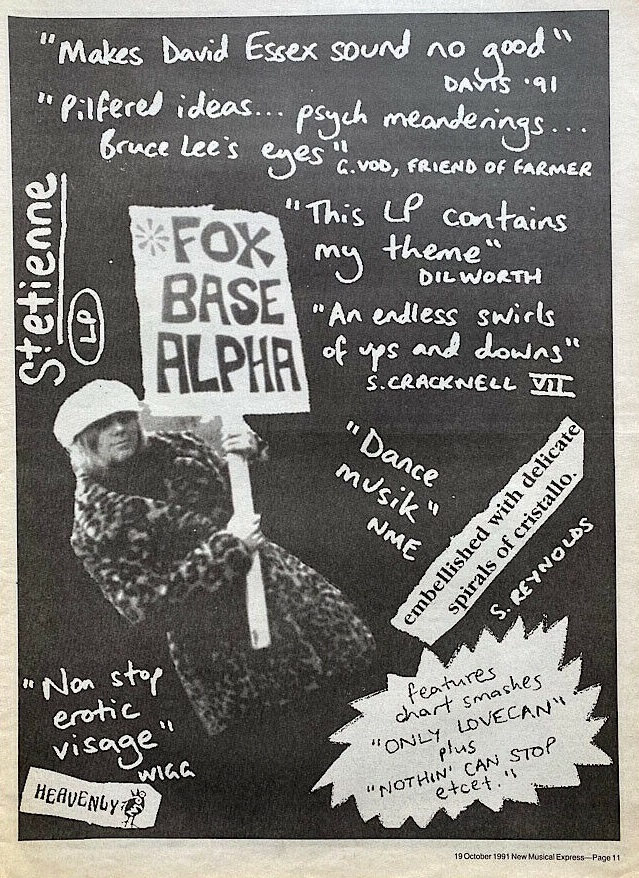 "Makes David Essex sound no good"
DAVIS '91
"Pilfered ideas... psych meanderings...
Bruce Lee's eyes"
G. VOD, FRIEND OF FARMER
St etienne
LP
*FOX
BASE
ALPHA
"This LP contains
my theme"
DILWORTH
"An endless swirls
of ups and downs"
S. CRACKNELL VII
"Dance
musik"
NME
embellished with delicate
spirals of cristallo.
S. REYNOLDS
"Non stop
erotic
visage"
WIGG
HEAVENLY
features
chart smashes
"ONLY LOVECAN"
plus
"NOTHIN' CAN STOP
etcet."
19 October 1991 New Musical Express—Page 11